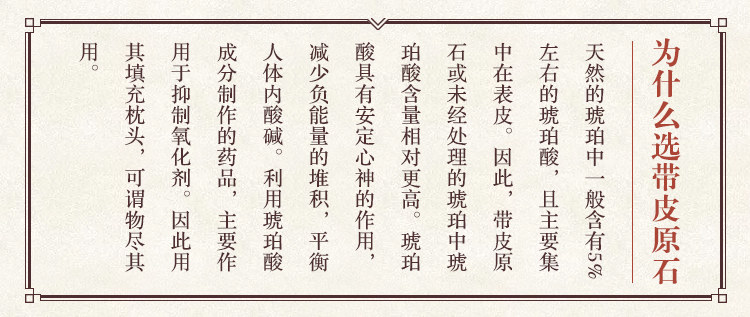 为什么选带皮原石
天然的琥珀中一般含有5%
左右的琥珀酸，且主要集
中在表皮。因此，带皮原
石或未经处理的琥珀中琥
珀酸含量相对更高。琥珀
酸具有安定心神的作用，
减少负能量的堆积，平衡
人体内酸碱。利用琥珀酸
成分制作的药品，主要作
用于抑制氧化剂。因此用
其填充枕头，可谓物尽其
用。